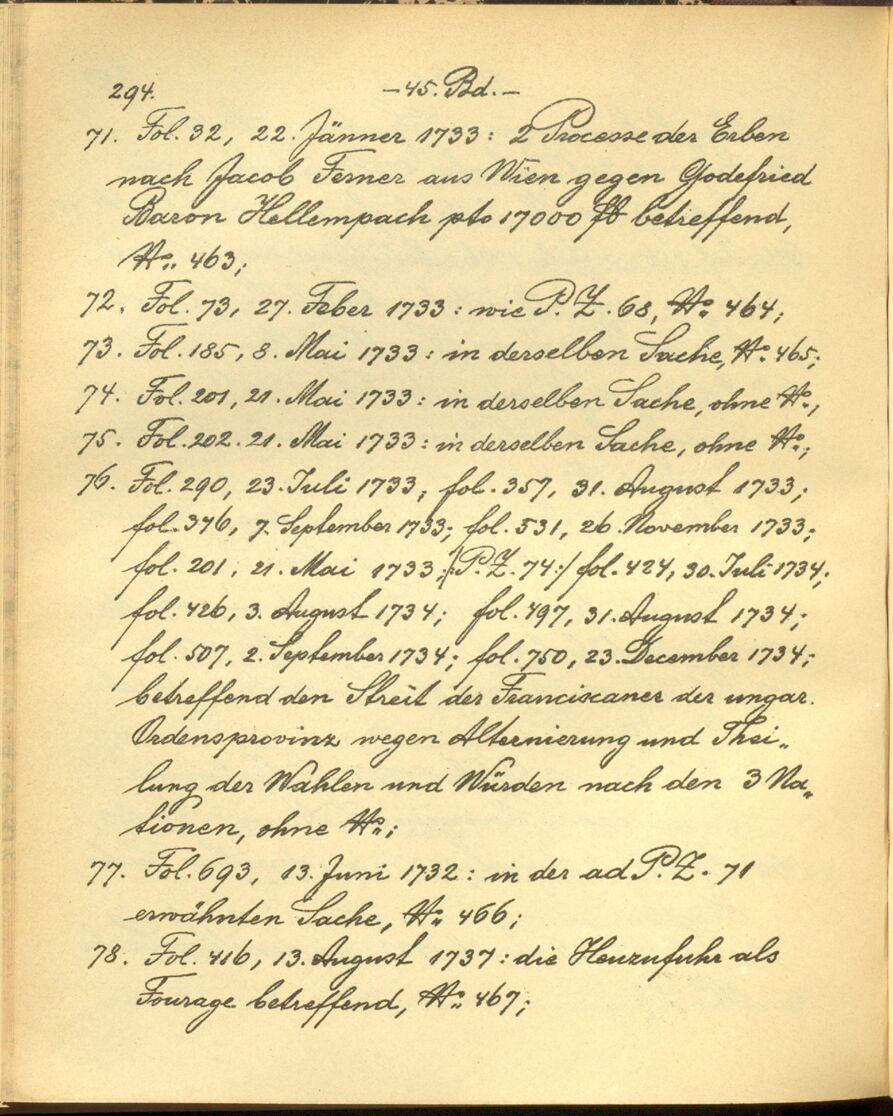 294. -45. Bd.-
71. Fol. 32, 22. Jänner 1733: 2 Processe der Erben
nach Jacob Ferner aus Wien gegen Godefried
Baron Hellempach pto 17000 fl betreffend,
№ 463;
72. Fol. 73, 27. Feber 1733: wie P. Z. 68, № 464;
73. Fol. 185, 8. Mai 1733: in derselben Sache, № 465;
74. Fol. 201, 21. Mai 1733: in derselben Sache, ohne №,
75. Fol. 202. 21. Mai 1733: in derselben Sache, ohne №;
76. Fol. 290, 23. Juli 1733; fol. 357, 31. August 1733;
fol. 376, 7. September 1733; fol. 531, 26. November 1733;
fol. 201, 21. Mai 1733; /:P. Z. 74:/ fol. 424, 30. Juli 1734;
fol. 426, 3. August 1734; fol. 497, 31. August 1734;
fol. 507, 2. September 1734; fol. 750, 23. December 1734;
betreffend den Streit der Franciscaner der ungar.
Ordensprovinz wegen Alternierung und Thei„
lung der Wahlen und Würden nach den 3 Na„
tionen, ohne №;
77. Fol. 693, 13. Juni 1732: in der ad P. Z. 71
erwähnten Sache, № 466;
78. Fol. 416, 13. August 1737: die Heuzufuhr als
Fourage betreffend, № 467;